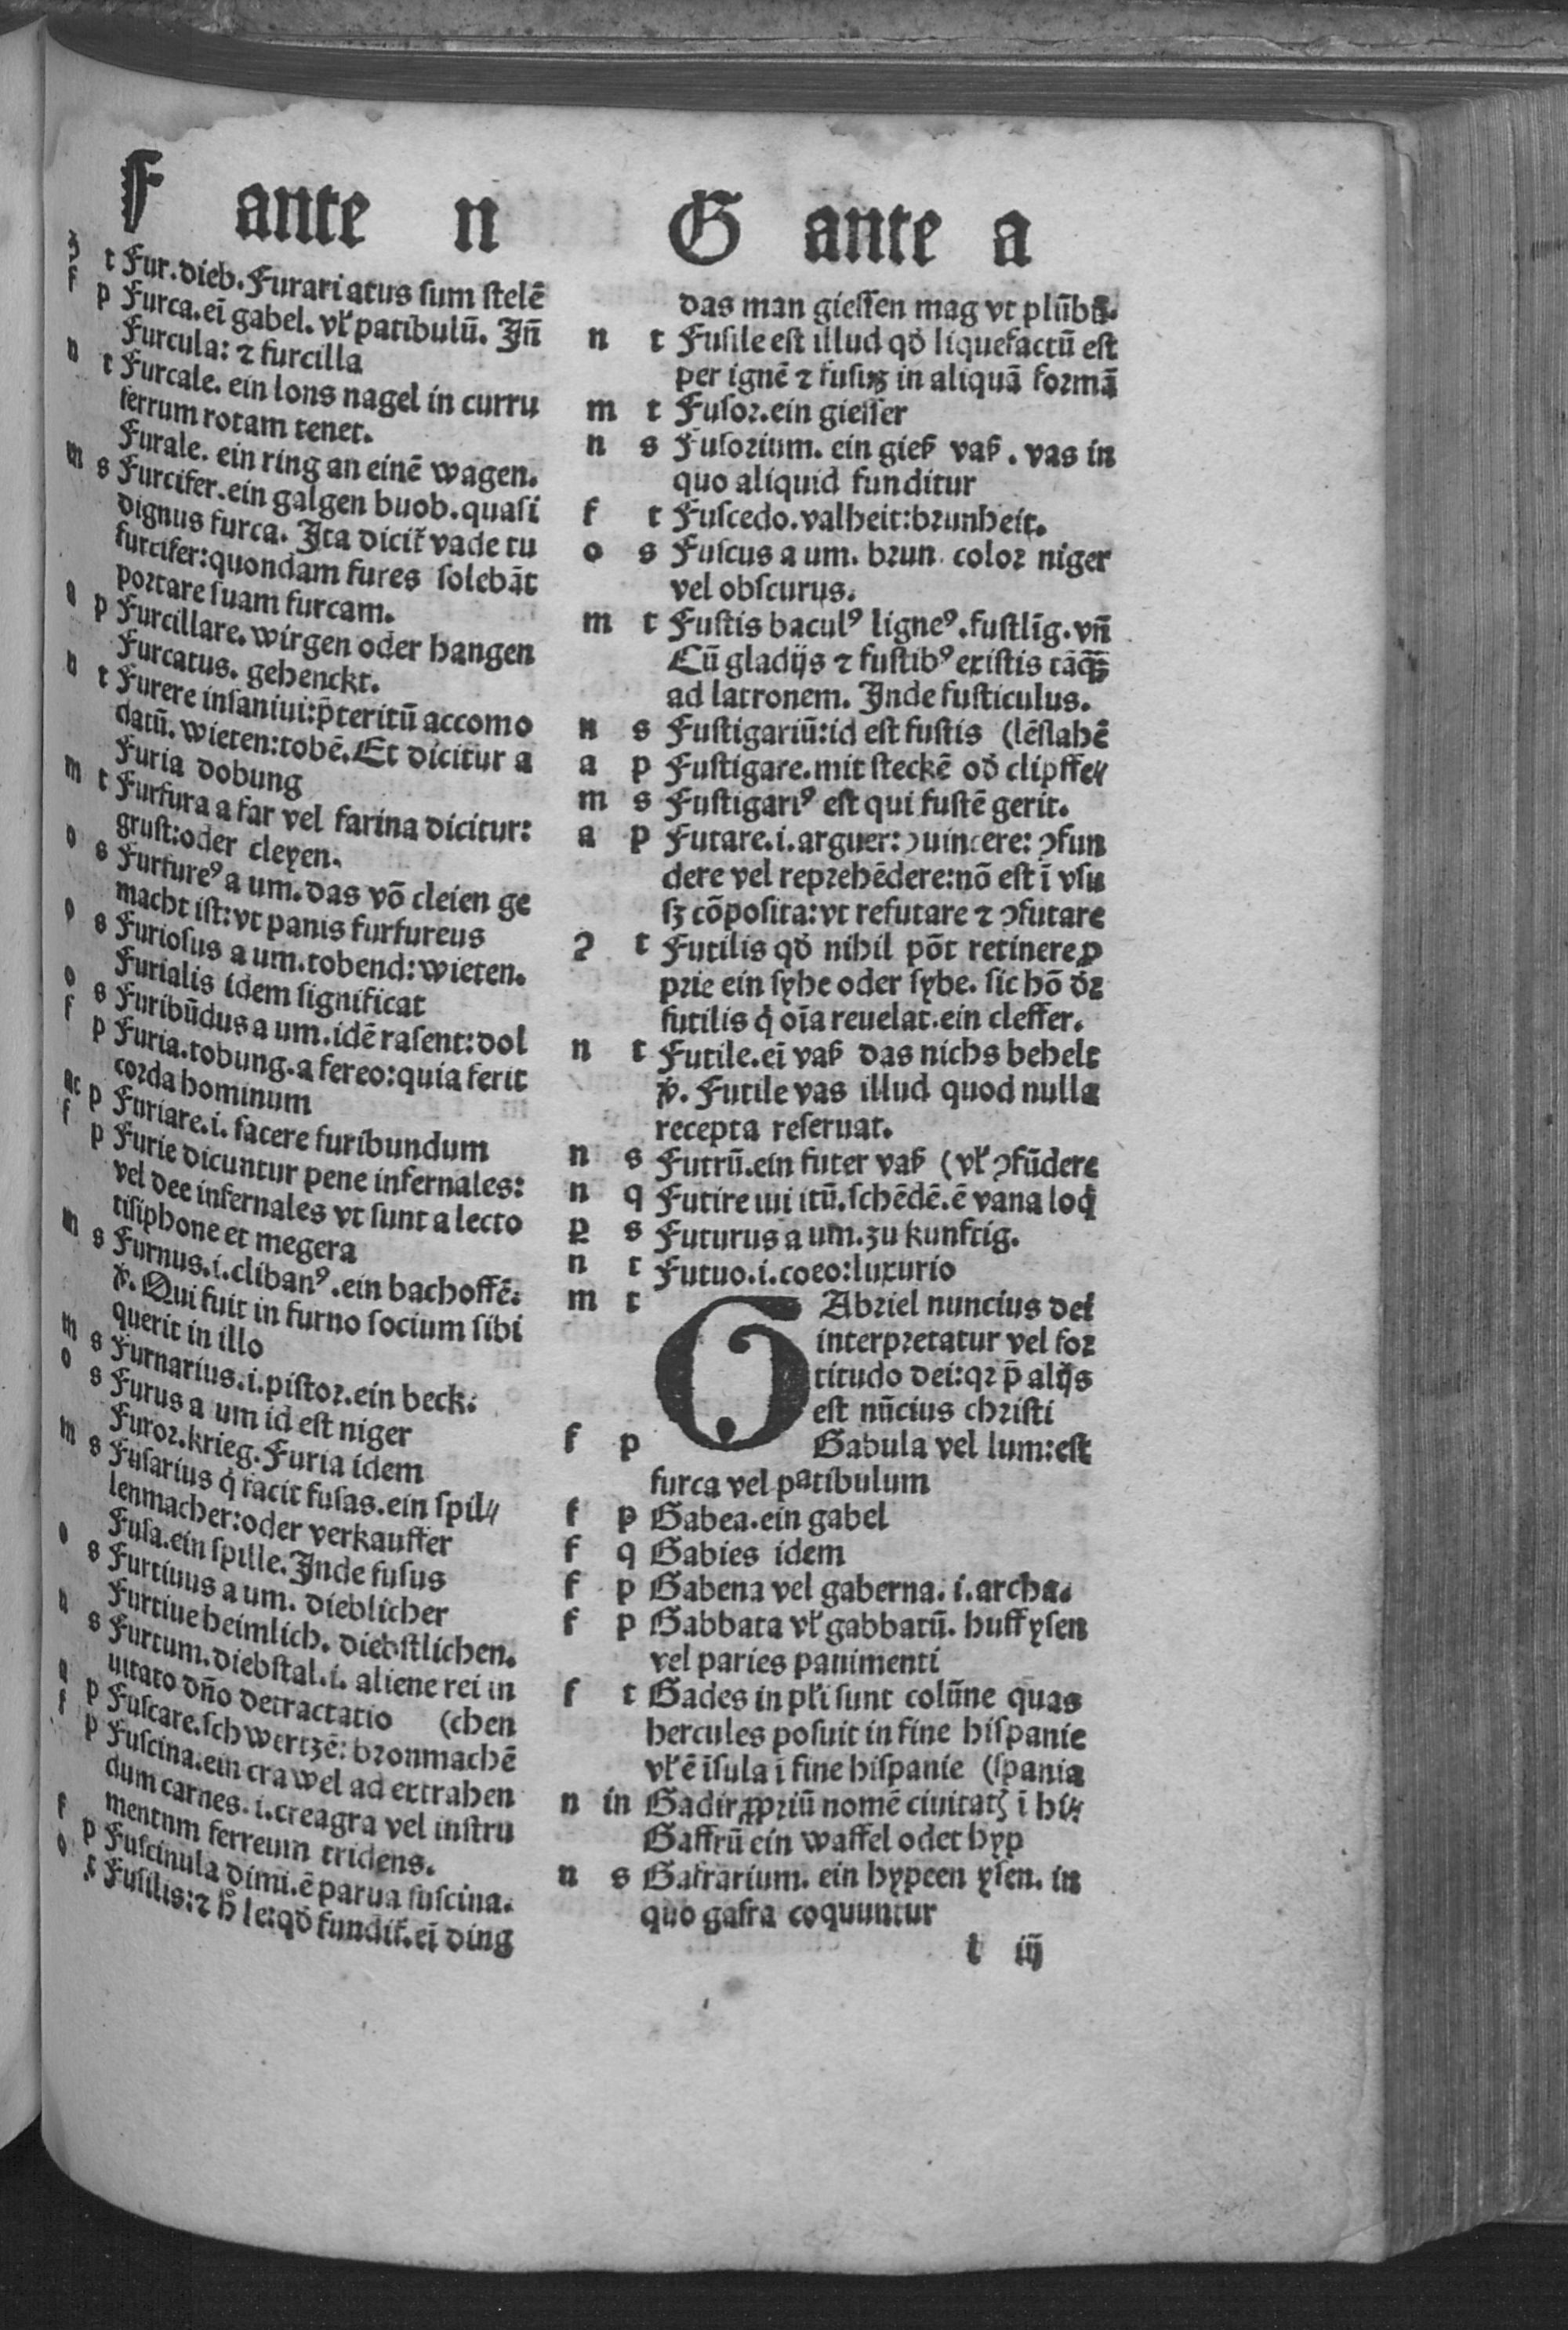 F ante n
ʒ t Fur.dieb.Furari atus sum stelē
f p Furca.eī gabel.vl̕ patibulū. Jn̄
Furcula: ⁊ furcilla
n t Furcale. ein lons nagel in curru
ferrum rotam tenet.
Furale. ein ring an einē wagen.
m s Furcifer.ein galgen buob.quasi
dignus furca. Jta dicit̕ vade tu
furcifer:quondam fures solebāt
portare suam furcam.
a p Furcillare.wirgen oder hangen
Furcatus. gehenckt.
n t Furere insaniui:p̄teritū accomo
datū. wieten:tobē.Et dicitur a
Furia dobung
m t Furfura a far vel farina dicitur:
grust:oder cleyen.
o s Furfureꝰ a um.das vō cleien ge
macht ist:vt panis furfureus
o s Furiosus a um.tobend:wieten.
Furialis idem significat
o s Furibūdus a um.idē rasent:dol
f p Furia.tobung.a fereo:quia ferit
corda hominum
ac p Furiare.i. facere furibundum
f p Furie dicuntur pene infernales:
vel dee infernales vt sunt alecto
tisiphone et megera
m s Furnus.i.clibanꝰ.ein bachoffē.
v̕. Qui fuit in furno socium sibi
querit in illo
m s Furnarius.i.pistor.ein beck.
o s Furus a um id est niger
Furor.krieg.Furia idem
m s Fusarius q̇ facit fusas.ein spil⸗
lenmacher:oder verkauffer
Fusa.ein spille.Jnde fusus
o s Furtiuus a um. dieblicher
Furtiue heimlich. diebstlichen.
n s Furtum.diebstal.i. aliene rei in
uitato dn̄o detractatio (chen
a p Fuscare.schwertzē: bronmachē
f p Fuscina.ein crawel ad extrahen
dum carnes. i.creagra vel instru
mentum ferreum tridens.
f p Fuscinula dimi.ē parua fuscina.
o t Fusilis:⁊ h̄ le:qd̕ fundit̕.eī ding
G ante a
das man giessen mag vt plūbū.
n t Fusile est illud qd̕ liquefactū est
per ignē ⁊ fusuʒ in aliquā formā
m t Fusor.ein giesser
n s Fusorium. ein gieß vaß. vas in
quo aliquid funditur
f t Fuscedo.valheit:brunheit.
o s Fuscus a um. brun color niger
vel obscurus.
m t Fustis baculꝰ ligneꝰ.fustlīg.vn̄
Cū gladijs ⁊ fustibꝰ existis tāq̄ꝫ
ad latronem. Jnde fusticulus.
n s Fustigariū:id est fustis (lēslahē
a p Fustigare.mit steckē od̕ clipffe⸗
m s Fustigariꝰ est qui fustē gerit.
a p Futare.i.arguer:ↄuincere: ↄfun
dere vel reprehēdere:nō est ī vsu
sꝫ cōposita:vt refutare ⁊ ↄfutare
2 t Futilis qd̕ nihil pōt retinere ꝓ
prie ein syhe oder sybe. sic hō dꝛ
futilis q̇ oīa reuelat.ein cleffer.
n t Futile.eī vaß das nichs behelt
v̕. Futile vas illud quod nulla
recepta reseruat.
n s Futrū.ein futer vaß (vl̕ ↄfūdere
n q Futire iui itū.schēdē.ē vana loq̇
p s Futurus a um.zu kunftig.
n t Futuo.i.coeo:luxurio
m t GAbriel nuncius dei
interpretatur vel for
titudo dei:qꝛ p̄ alijs
est nūcius christi
f p Gabula vel lum:est
furca vel patibulum
f p Gabea.ein gabel
f q Gabies idem
f p Gabena vel gaberna. i.archa.
f p Gabbata vl̕ gabbatū. huff ysen
vel paries pauimenti
f t Gades in pl̕i sunt colūne quas
hercules posuit in fine hispanie
vl̕ ē īsula ī fine hispanie (spania
n in Gadir ꝓpriū nomē ciuitatꝭ ī hi⸗
Gaffrū ein waffel odet hyp
n s Gafrarium. ein hypeen ysen. in
quo gafra coquuntur
t iij